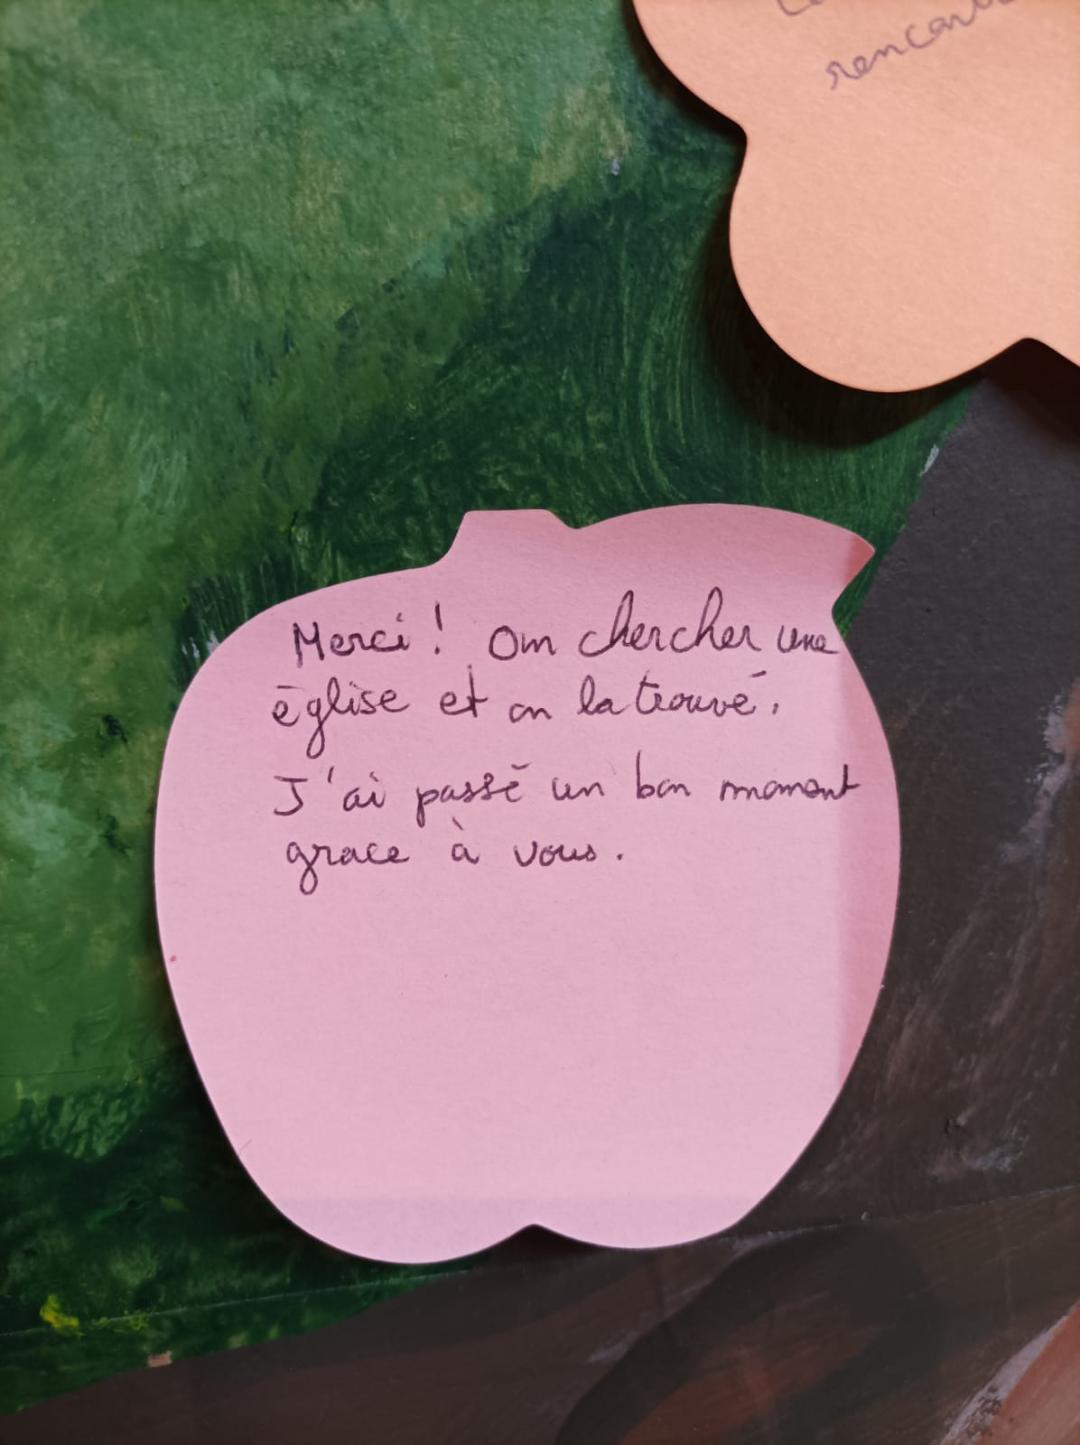 rencont
Merci ! On chercher une
église et on la trouvé.
J'ai passé un bon moment
grace à vous.